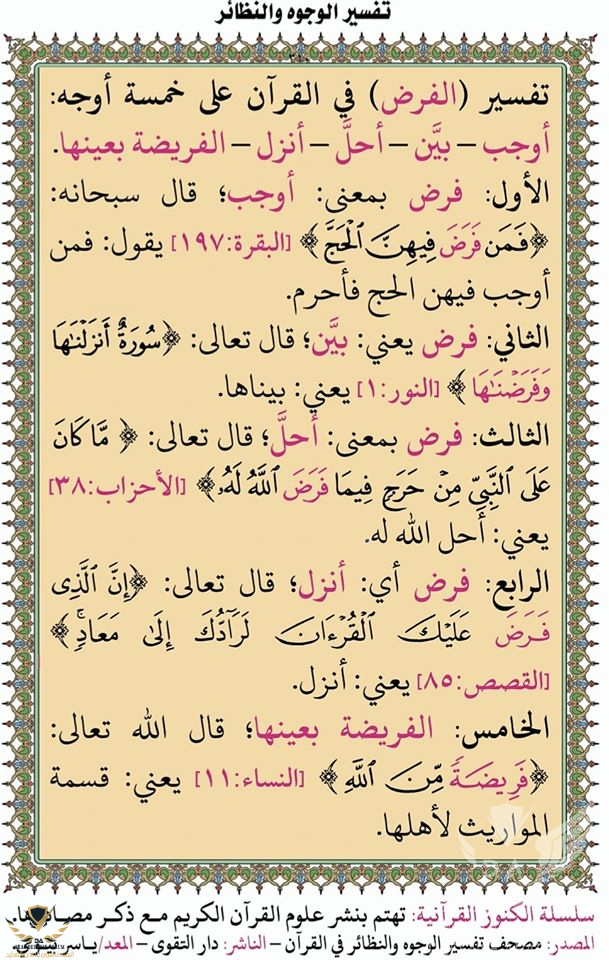 تفسير الوجوه والنظائر
تفسير (الفرض) في القرآن على خمسة أوجه:
أوجب – بيَّن – أحلَّ – أنزل – الفريضة بعينها.
الأول: فرض بمعنى: أوجب؛ قال سبحانه:
﴿فَمَن فَرَضَ فِيهِنَّ ٱلْحَجَّ﴾ [البقرة:١٩٧] يقول: فمن
أوجب فيهن الحج فأحرم.
الثاني: فرض يعني: بيَّن؛ قال تعالى: ﴿سُورَةٌ أَنزَلْنَٰهَا
وَفَرَضْنَٰهَا﴾ [النور:١] يعني: بيناها.
الثالث: فرض بمعنى: أحلَّ؛ قال تعالى: ﴿مَّا كَانَ
عَلَى ٱلنَّبِيِّ مِنْ حَرَجٍ فِيمَا فَرَضَ ٱللَّهُ لَهُۥ﴾ [الأحزاب:٣٨]
يعني: أحل الله له.
الرابع: فرض أي: أنزل؛ قال تعالى: ﴿إِنَّ ٱلَّذِى
فَرَضَ عَلَيْكَ ٱلْقُرْءَانَ لَرَآدُّكَ إِلَىٰ مَعَادٍۚ﴾
[القصص:٨٥] يعني: أنزل.
الخامس: الفريضة بعينها؛ قال الله تعالى:
﴿فَرِيضَةً مِّنَ ٱللَّهِ﴾ [النساء:١١] يعني: قسمة
المواريث لأهلها.
سلسلة الكنوز القرآنية: تهتم بنشر علوم القرآن الكريم مع ذكر مصادرها.
المصدر: مصحف تفسير الوجوه والنظائر في القرآن – الناشر: دار التقوى – المعد/ياسر